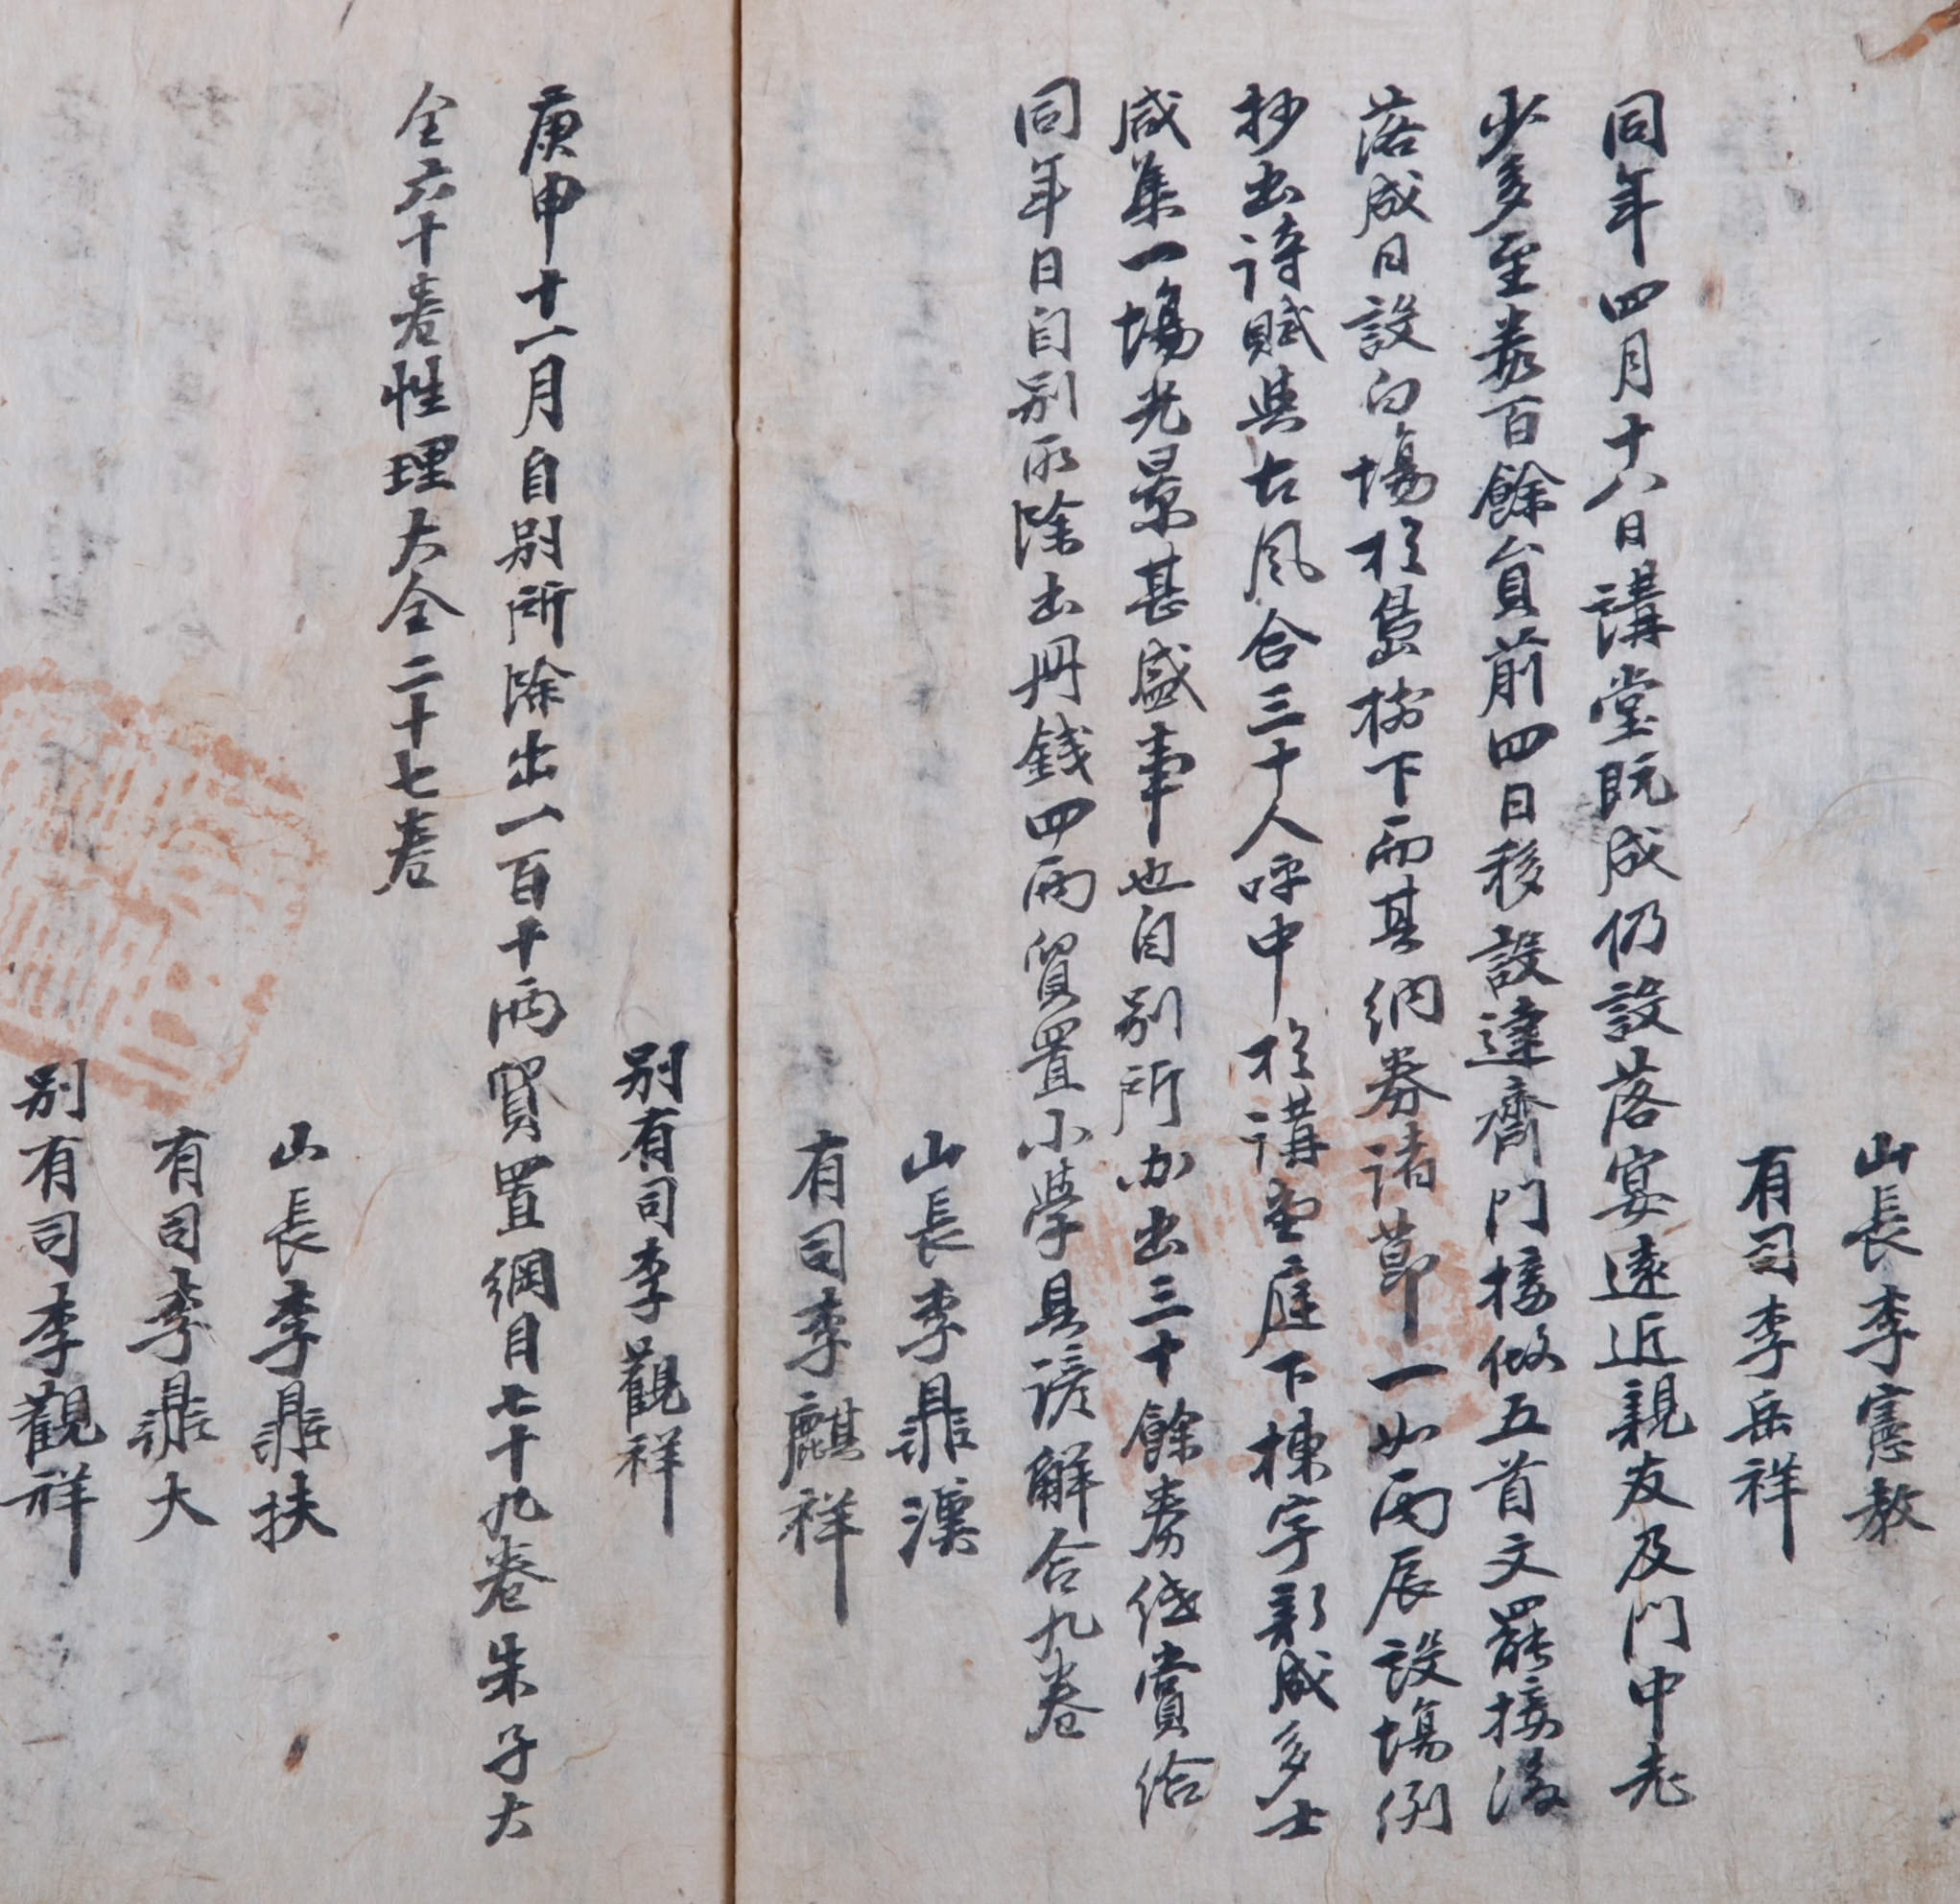 山長李憲教
有司李岳祥
同年四月十八日講堂旣成仍設落宴遠近親友及門中老
少多至數百餘員前四日移設達齋門接做五首文罷接後
落成日設白場於島樹下而其納券諸節一如丙辰設場例
抄出詩賦與古風合三十人呼中於講堂庭下棟宇新成多士
咸集一場光景甚盛事也自別所办出三十餘券紙賞給
同年日自別所除出冊錢四兩貿置小學具諺解合九卷
山長李鼎漢
有司李麒祥
別有司李觀祥
庚申十一月自別所除出一百十兩貿置綱目七十九卷朱子大
全六十卷性理大全二十七卷
山長李鼎扶
有司李鼎大
別有司李觀祥